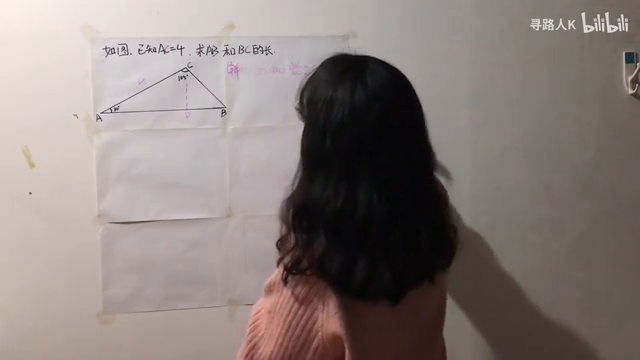 寻路人K bilibili
如图，已知AC=4，求AB和BC的长.
解
C
105°
A
30°
B
D